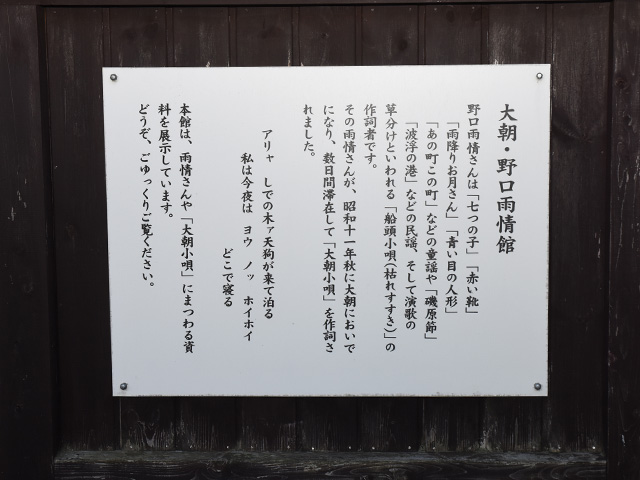 大朝・野口雨情館
野口雨情さんは「七つの子」「赤い靴」
「雨降りお月さん」「青い目の人形」
「あの町この町」などの童謡や「磯原節」
「波浮の港」などの民謡、そして演歌の
草分けといわれる「船頭小唄(枯れすすき)」の
作詞者です。
その雨情さんが、昭和十一年秋に大朝においで
になり、数日間滞在して「大朝小唄」を作詞さ
れました。
アリャ しでの木ァ天狗が来て泊る
私は今夜は ヨウ ノッ ホイホイ
どこで寝る
本館は、雨情さんや「大朝小唄」にまつわる資
料を展示しています。
どうぞ、ごゆっくりご覧ください。